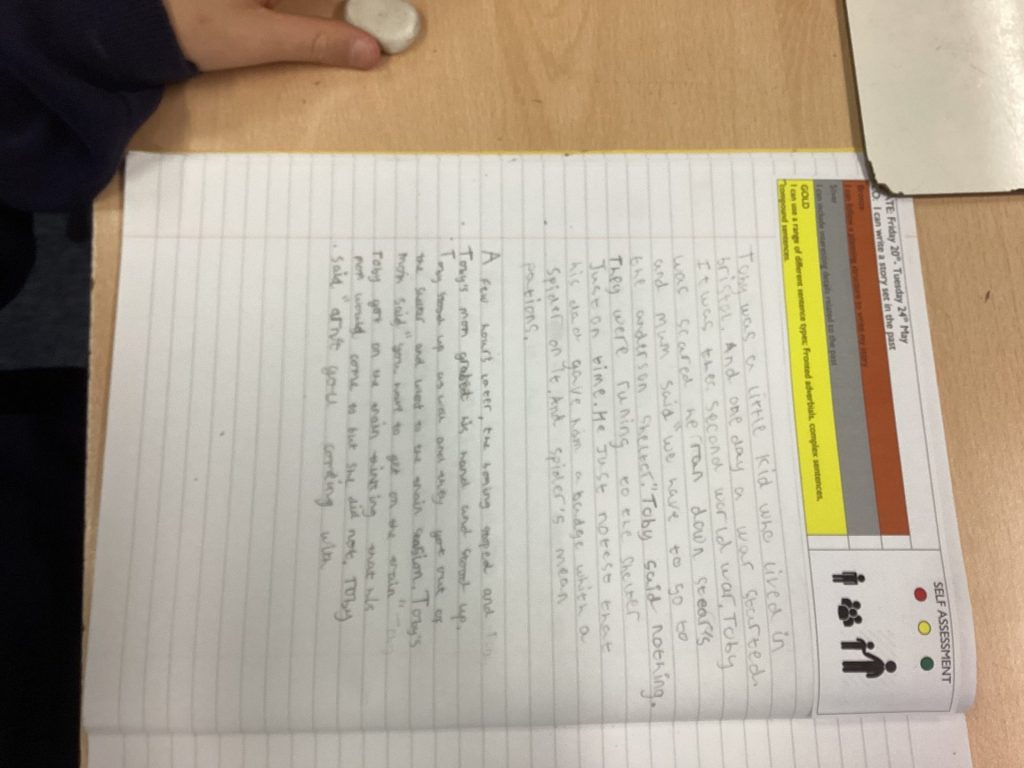 DATE: Friday 20th - Tuesday 24th May
I can write a story set in the past
Bronze
Silver
I can include interesting details related to the past
GOLD
I can use a range of different sentence types: Fronted adverbials, complex sentences,
compound sentences.
SELF ASSESSMENT
Toby was a little kid who lived in
bristol. And one day a war started.
It was the second world war. Toby
was scared he ran down stears
and mum said "we have to go to
the anderson shelter." Toby said nothing.
They were runing to the shelter
Just on time. He Just notest that
his dad gave him a badge which a
spider on it. And spider's mean
pations.
A few hours later the boming stoped and
Toby's mom grabed his hand and stood up.
Toby stood up as well and they got out of
the shelter and went to the train station. Toby's
mom said "you have to get on the train"
Toby got on the train thinking that his
mom would come to but she did not. TOby
said "arnt you coming with